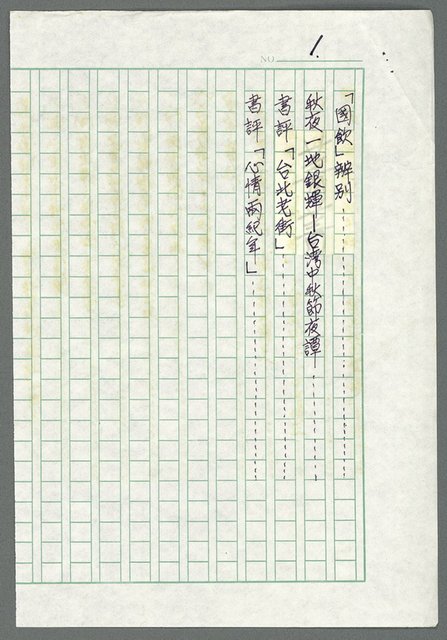 NO. 1.
「國飲」辨別
秋夜一地銀輝—台灣中秋節夜譚
書評「台北老街」
書評「心情兩紀年」